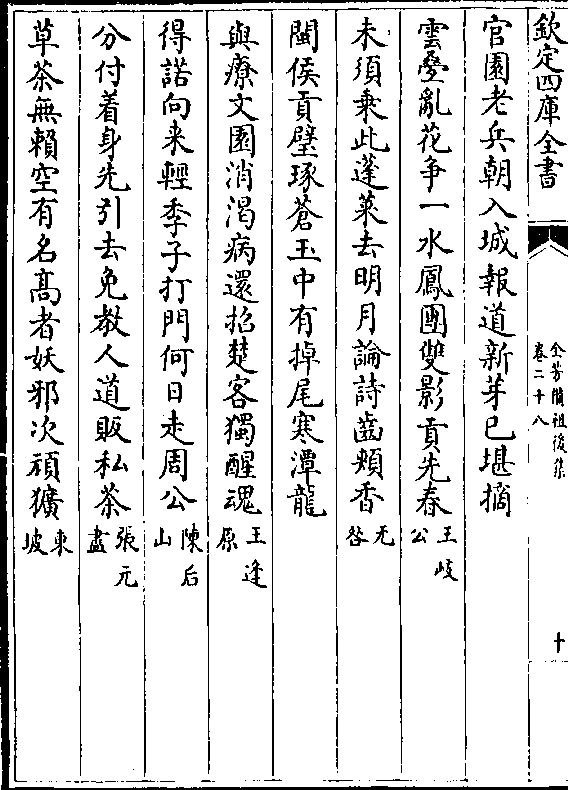 欽定四庫全書
全芳備祖後集
卷二十八
十
官園老兵朝入城報道新芽已堪摘
雲疊亂花争一水鳳團雙影貢先春王岐公
未須乗此蓬萊去明月論詩齒頰香无咎
閩侯貢璧琢蒼玉中有掉尾寒潭龍
與療文園消渴病還招楚客獨醒魂王逢原
得諾向来輕季子打門何日走周公陳后山
分付着身先引去免教人道販私茶張元盡
草茶無賴空有名髙者妖邪次頑獷東坡